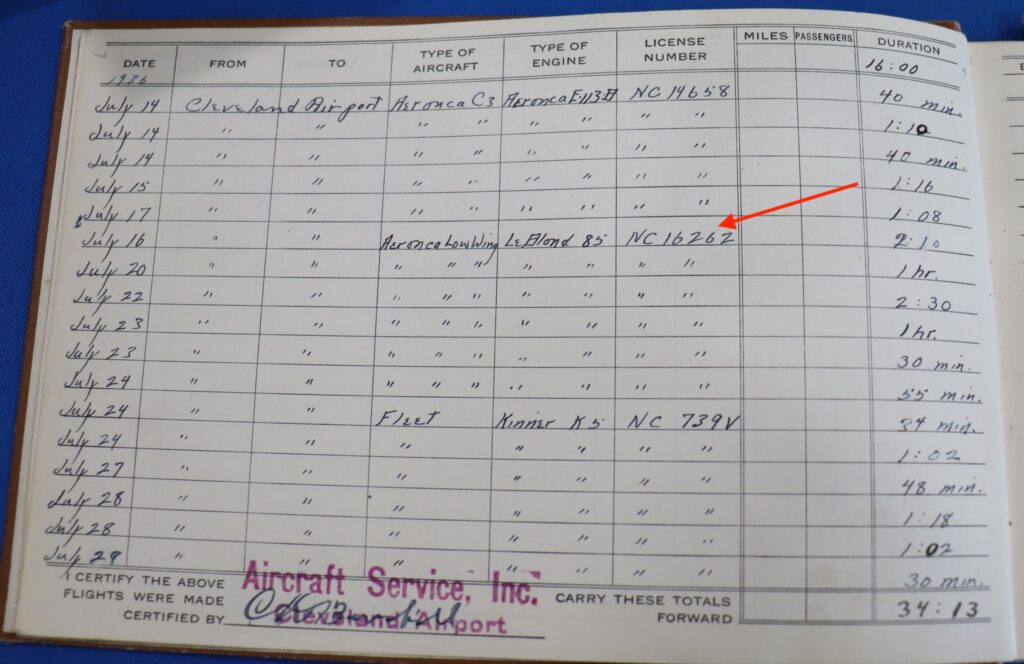 DATE FROM TO TYPE OF AIRCRAFT TYPE OF ENGINE LICENSE NUMBER MILES PASSENGERS DURATION
1936 16:00
July 14 Cleveland Airport Aeronca C3 Aeronca E113-A NC 14658 40 min.
July 14 " " " " " " " " 1:10
July 14 " " " " " " " " 40 min.
July 15 " " " " " " " " 1:16
July 17 " " " " " " " " 1:08
July 16 " " Aeronca Low Wing LeBlond 85 NC 16262 2:10
July 20 " " " " " " " " " 1 hr.
July 22 " " " " " " " " " 2:30
July 23 " " " " " " " " " 1 hr.
July 23 " " " " " " " " " 30 min.
July 24 " " " " " " " " " 55 min.
July 24 " " Fleet Kinner K5 NC 739V 34 min.
July 24 " " " " " " " 1:02
July 27 " " " " " " " 48 min.
July 28 " " " " " " " 1:18
July 28 " " " " " " " 1:02
July 29 " " " " " " " 30 min.
I CERTIFY THE ABOVE FLIGHTS WERE MADE
CERTIFIED BY
Aircraft Service, Inc.
Cleveland Airport
CARRY THESE TOTALS FORWARD 34:13